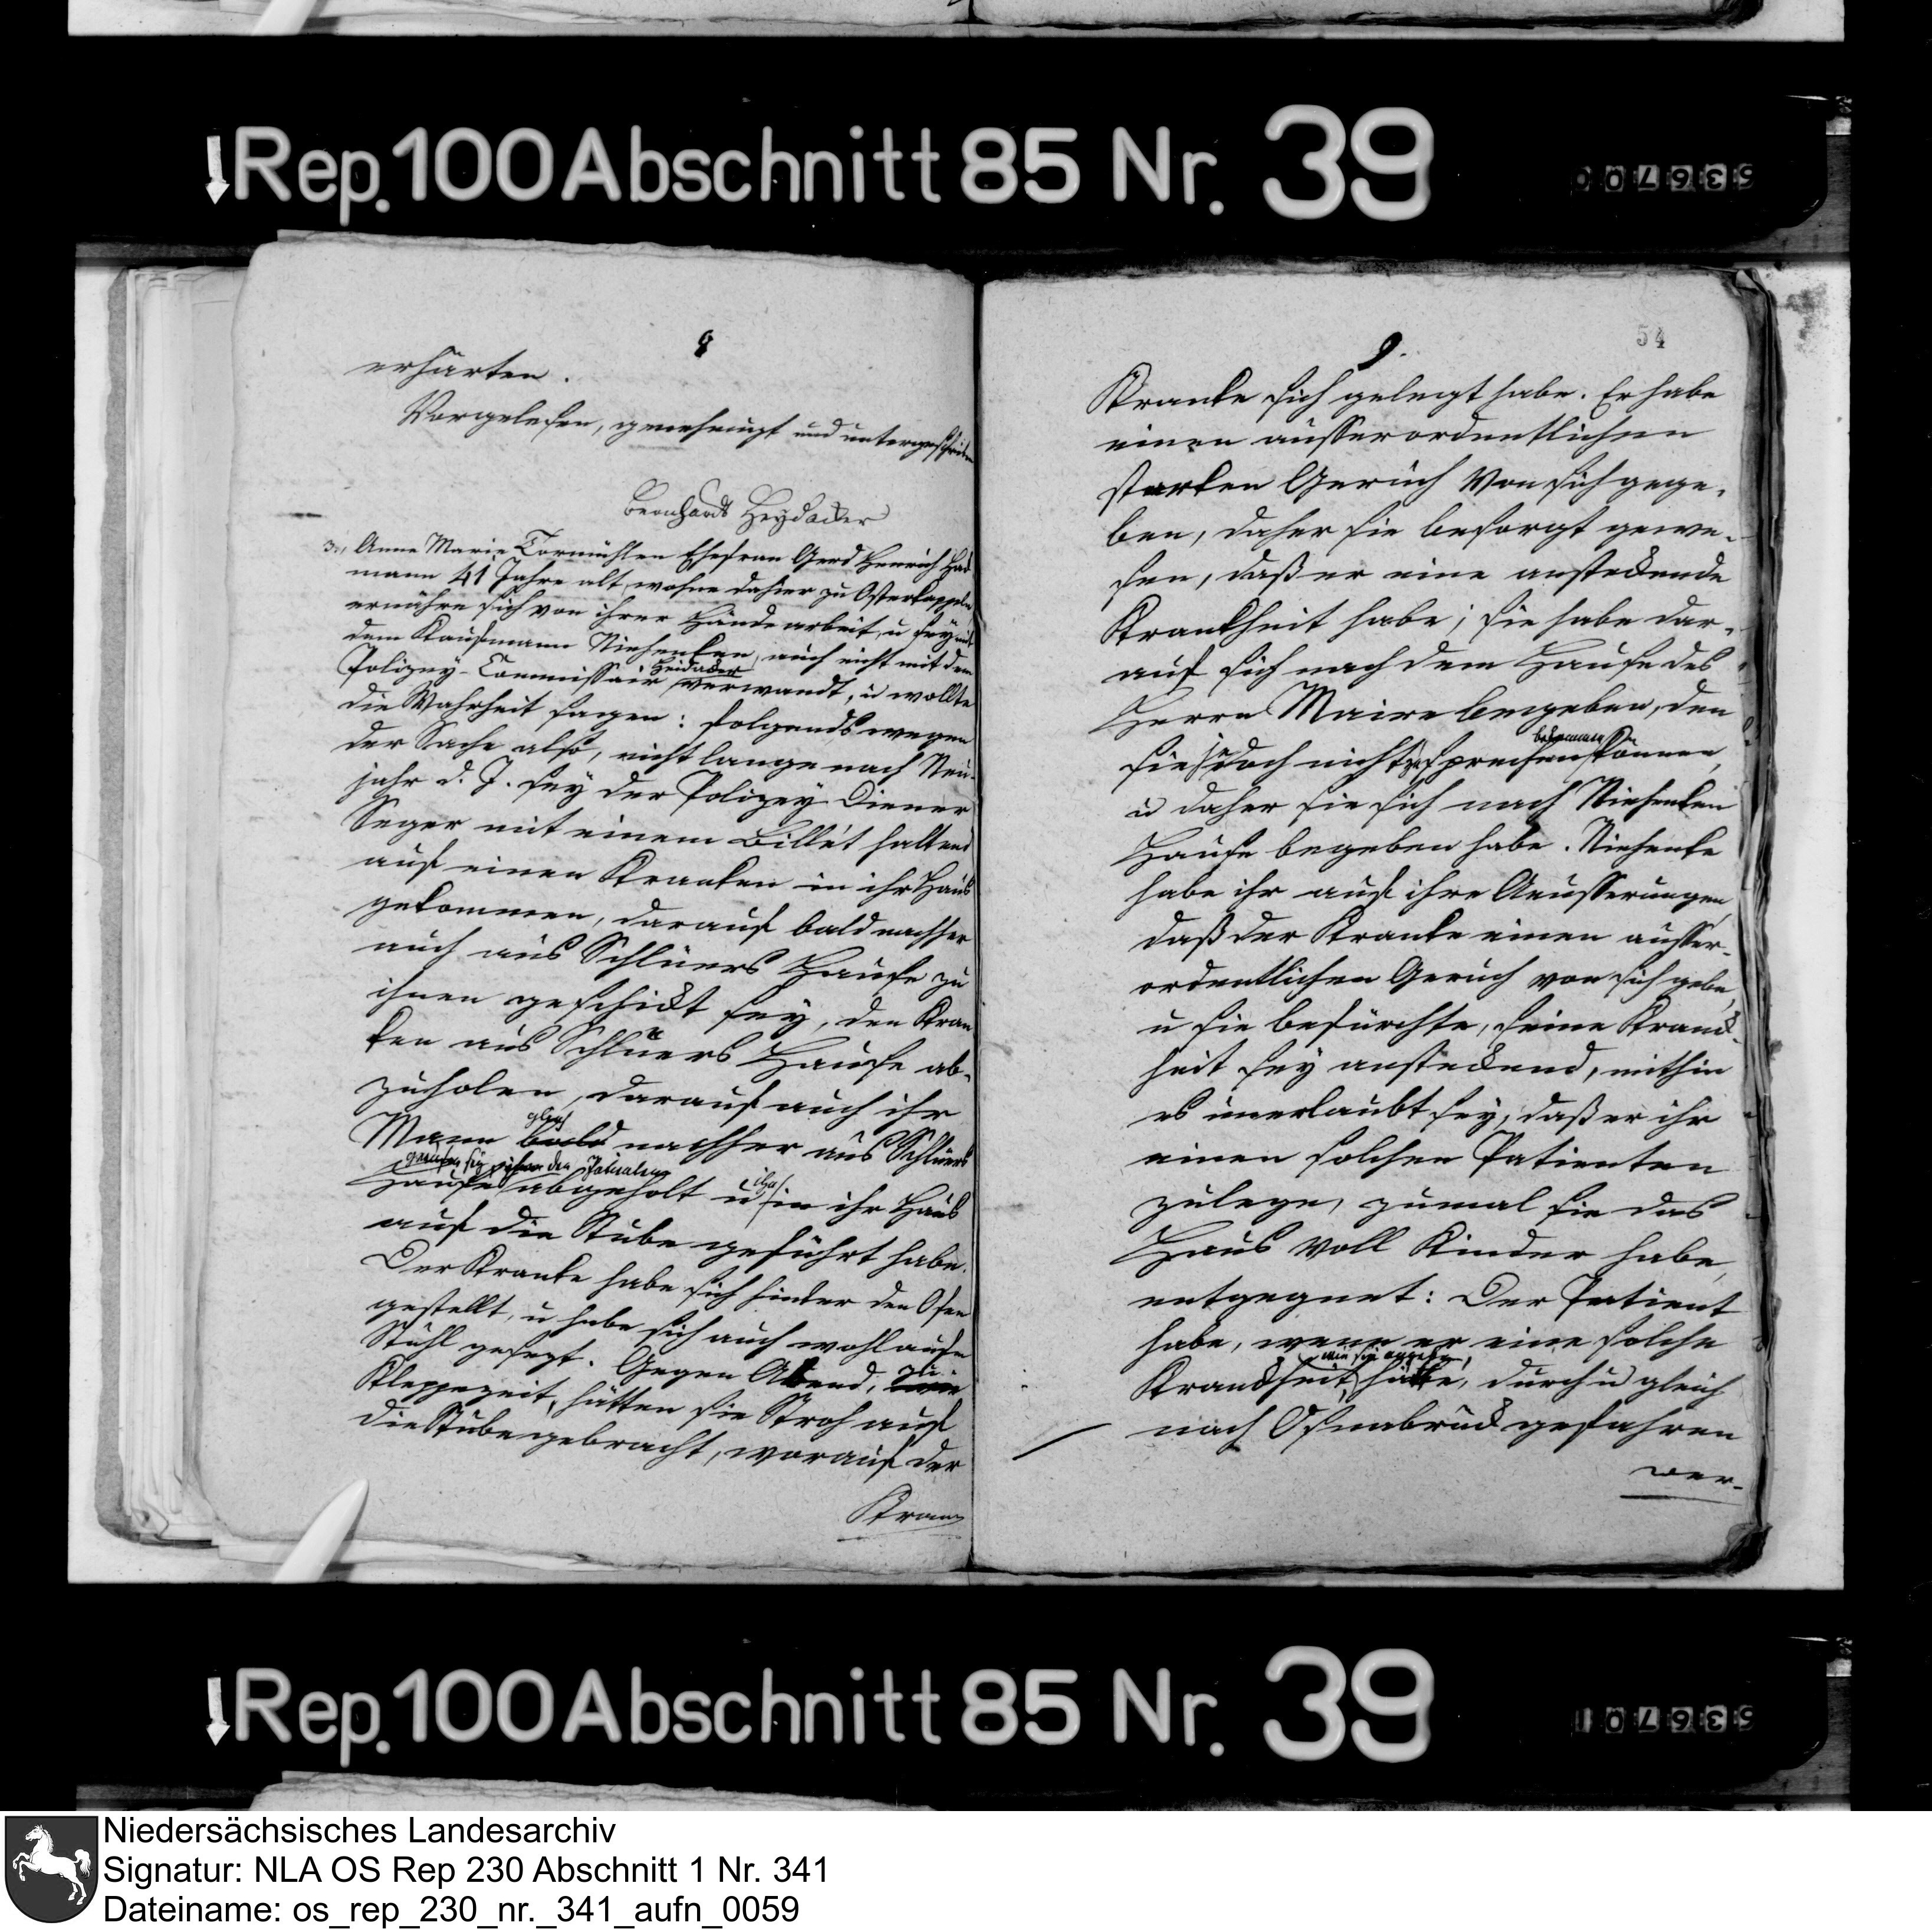 Rep. 100 Abschnitt 85 Nr. 39
536700
8
erhärten.
Vorgelesen, genehmigt und unterschrieben
Bernhard Heydacker
3., Anne Marie Tormühlen Ehefrau Gerd Henrich Had-
mann 41 Jahre alt, wohne dahier zu Osterkappeln
ernähre sich von ihrer Händearbeit, u sey mit
dem Kaufmann Niehenken, auch nicht mit dem
Polizey-Commissair Heidacker verwandt, u wollte
die Wahrheit sagen: folgends wegen
der Sache also, nicht lange nach Neu-
jahr d. J. sey der Polizey Diener
Seger mit einem Billét haltend
auf einen Kranken in ihr Haus
gekommen, darauf bald nachher
auch aus Schlüers Hause zu
ihnen geschickt sey, den Kran
ken aus Schlüers Hause ab-
zuholen, darauf auch ihr
Mann bald gleich nachher aus Schlüers
Hause den Patienten abgeholt u ihn in ihr Haus
auf die Stube geführt habe.
Der Kranke habe sich hinter den Ofen
gestellt, u habe sich auch wohl aufn
Stuhl gesezt. Gegen Abend, zu
Kleppezeit, hätten sie Stroh auf
die Stube gebracht, worauf der
Kranke
54
9.
Kranke sich gelegt habe. Er habe
einen ausserordentlichen
starken Geruch von sich gege-
ben, daher sie besorgt gewe-
sen, daß er eine ansteckende
Krankheit habe; sie habe dar-
auf sich nach dem Hause des
Herrn Maire begeben, den
sie jedoch nicht zu sprechen bekommen können,
u daher sie sich nach Niehenken
Hause begeben habe. Niehenke
habe ihr auf ihre Aeusserungen,
daß der Kranke einen ausser-
ordentlichen Geruch von sich gebe,
u sie befürchte, seine Krank-
heit sey ansteckend, mithin
es unerlaubt sey, daß er ihr
einen solchen Patienten
zulege, zumal sie das
Haus voll Kinder habe,
entgegnet: Der Patient
habe, wenn er eine solche
Krankheit, wie sie angebe, hätte, durch u gleich
nach Osnabrück gefahren
wer-
Rep. 100 Abschnitt 85 Nr. 39
536701
Niedersächsisches Landesarchiv
Signatur: NLA OS Rep 230 Abschnitt 1 Nr. 341
Dateiname: os_rep_230_nr._341_aufn_0059